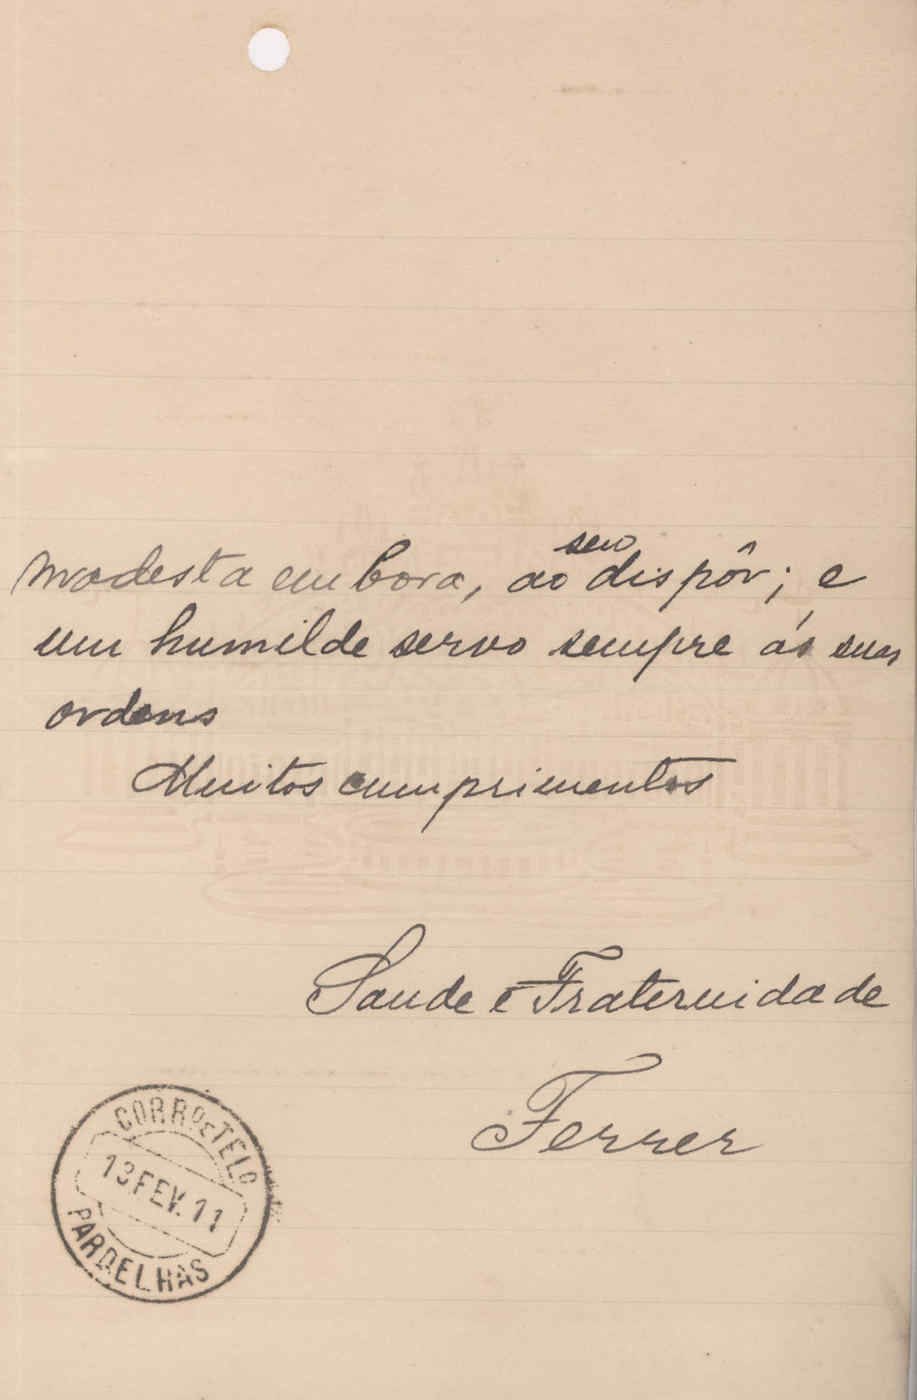 seu
modesta embora, ao dispôr; e
um humilde servo sempre ás suas
ordens
Muitos cumprimentos
Saude e Fraternidade
Ferrer
CORRO E TELO
13 FEV. 11
PARDELHAS